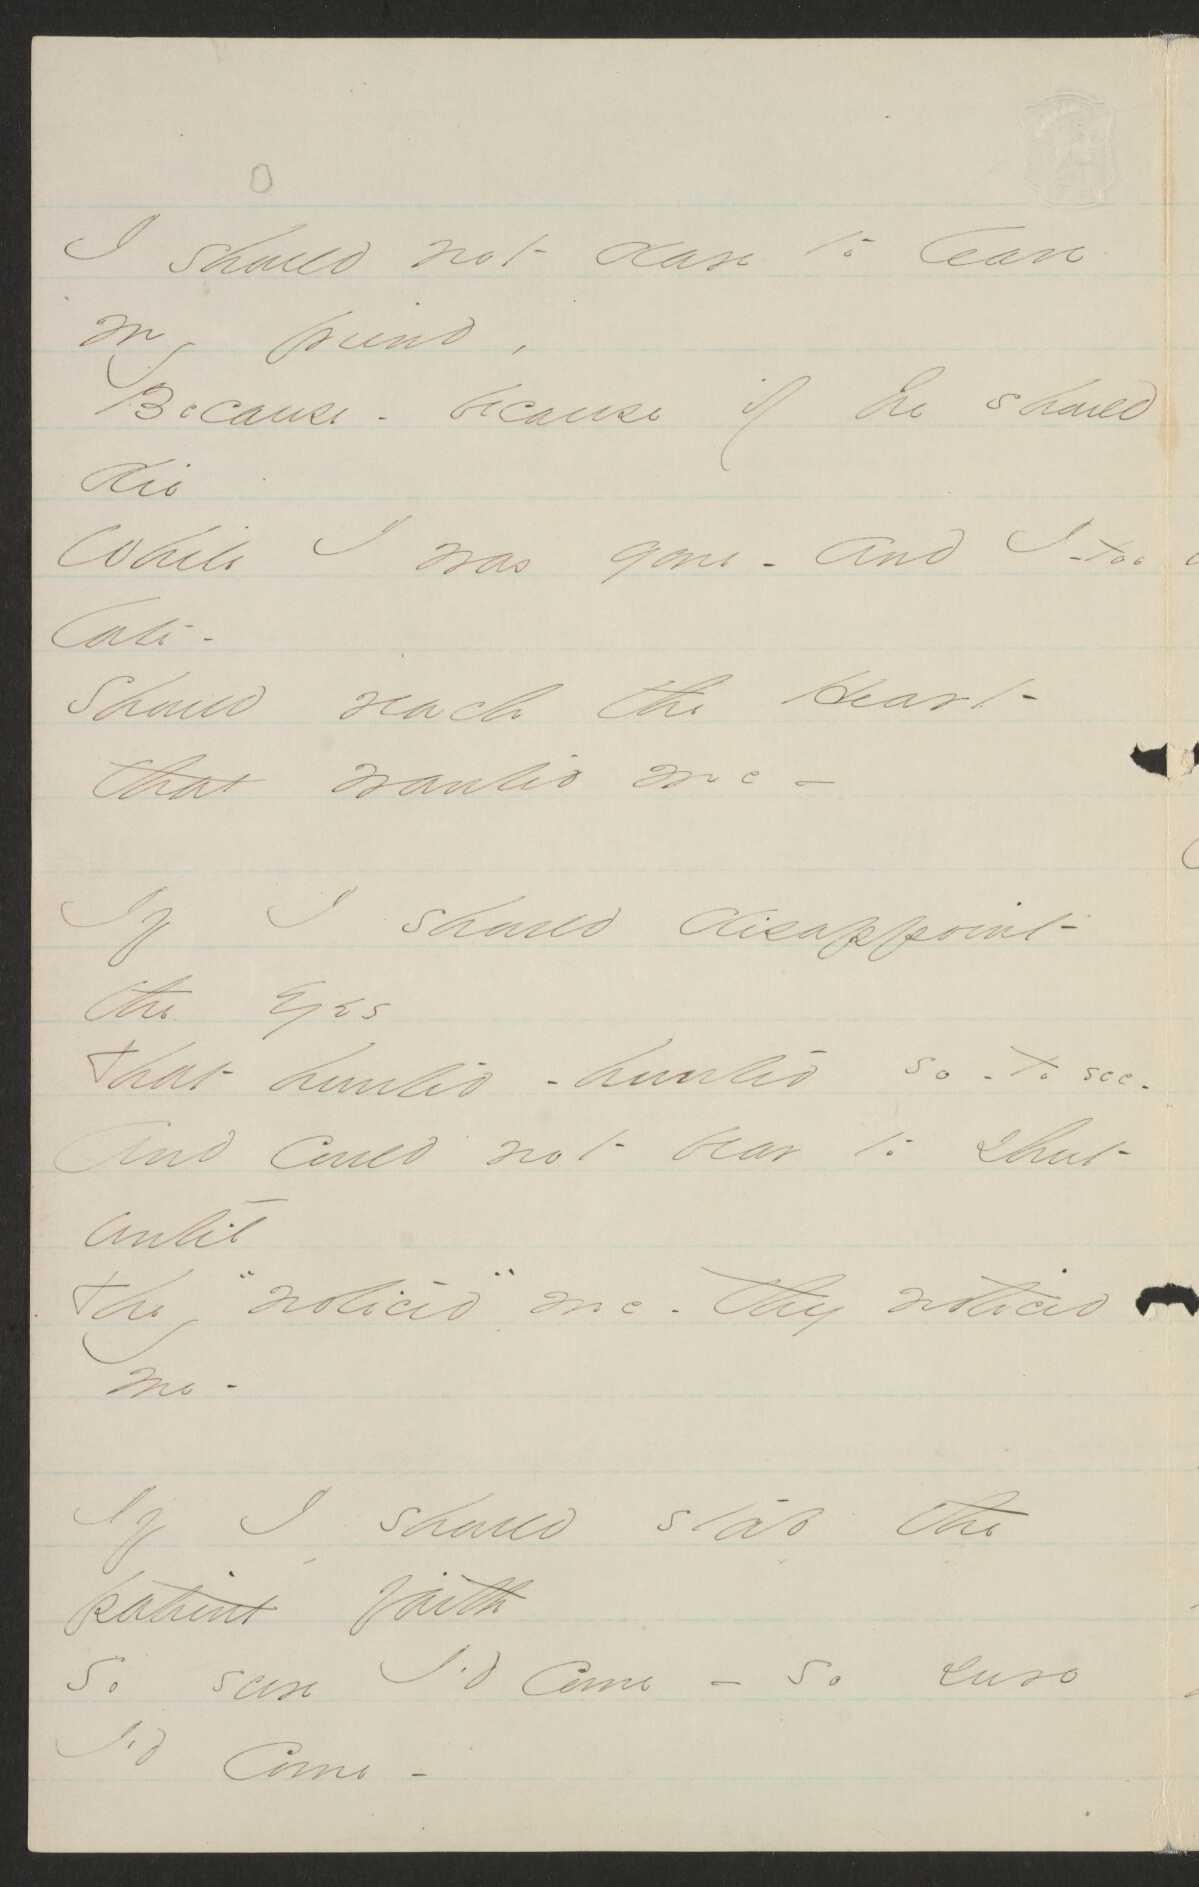 I should not dare to leave
my friend,
Because - because if he should
die
While I was gone - and I - too
late -
Should reach the Heart
that wanted me -
If I should disappoint
the Eyes
that hunted - hunted so - to see -
And could not bear to shut
until
they "noticed" me - They noticed
me -
If I should stab the
patient faith
So sure I'd come - So sure
I'd come -